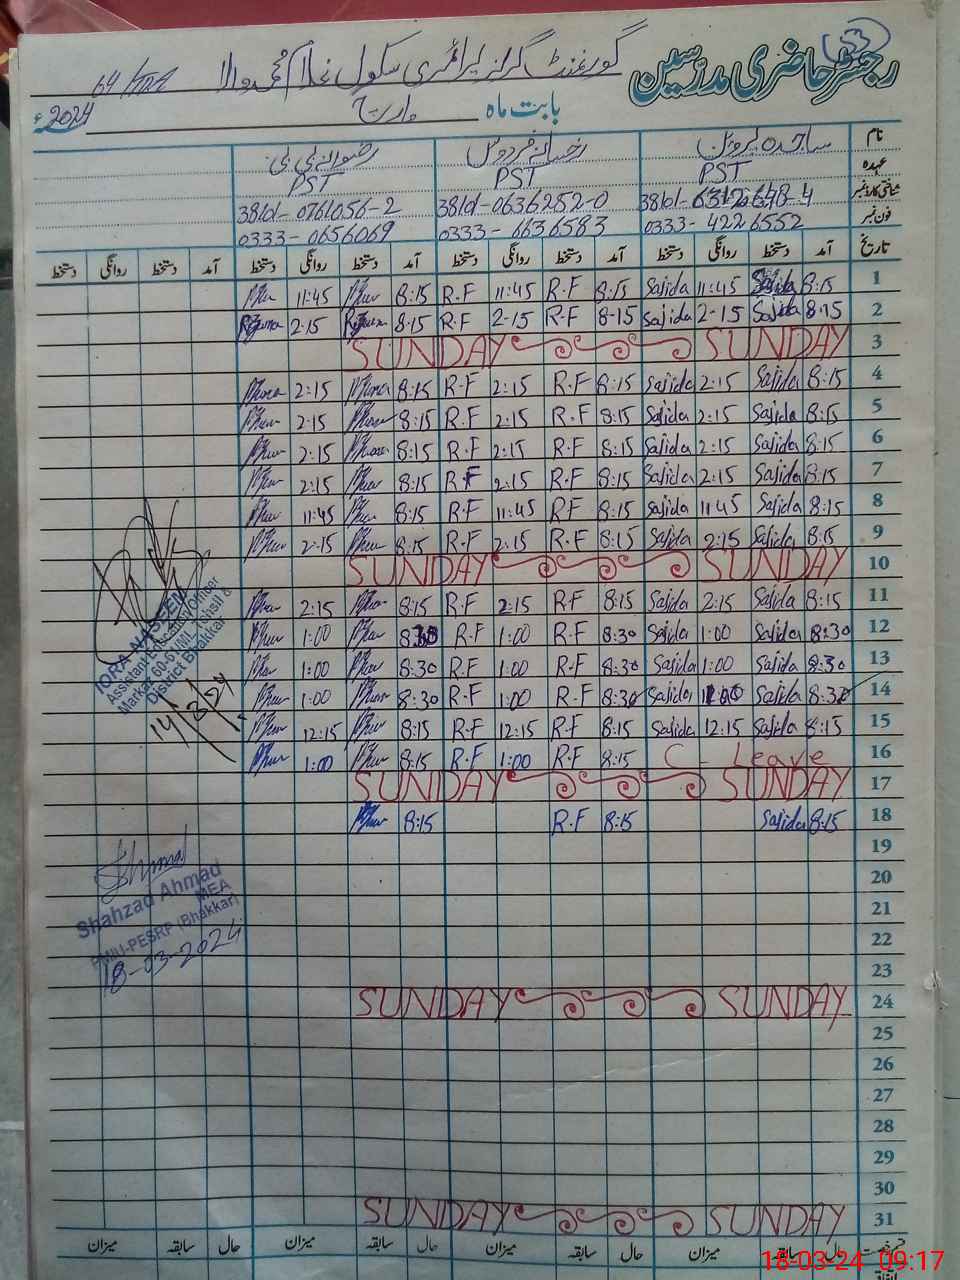 رجسٹر حاضری مدرسین
گورنمنٹ گرلز پرائمری سکول غلام محمد والا
بابت ماہ مارچ 2024ء
نام ساجدہ پروین رخسانہ فردوس رضوانہ بی بی
عہدہ PST PST PST
شناختی کارڈ نمبر 38101-6312648-4 38101-0636252-0 38101-0761056-2
فون نمبر 0333-4226552 0333-6636583 0333-0656069
تاریخ آمد دستخط روانگی دستخط آمد دستخط روانگی دستخط آمد دستخط روانگی دستخط آمد دستخط روانگی دستخط
1 8:15 Sajida 11:45 Sajida 8:15 R.F 11:45 R.F 8:15 11:45
2 8:15 Sajida 2-15 Sajida 8-15 R.F 2-15 R.F 8-15 2-15
3 SUNDAY SUNDAY
4 8:15 Sajida 2:15 Sajida 8:15 R.F 2:15 R.F 8:15 2:15
5 8:15 Sajida 2:15 Sajida 8:15 R.F 2:15 R.F 8:15 2:15
6 8:15 Sajida 2:15 Sajida 8:15 R.F 2:15 R.F 8:15 2:15
7 8:15 Sajida 2:15 Sajida 8:15 R.F 2:15 R.F 8:15 2:15
8 8:15 Sajida 11:45 Sajida 8:15 R.F 11:45 R.F 8:15 11:45
9 8:15 Sajida 2:15 Sajida 8:15 R.F 2:15 R.F 8:15 2-15
10 SUNDAY SUNDAY
11 8:15 Sajida 2:15 Sajida 8:15 R.F 2:15 R.F 8:15 2:15
12 8:30 Sajida 1:00 Sajida 8:30 R.F 1:00 R.F 8:30 1:00
13 8:30 Sajida 1:00 Sajida 8:30 R.F 1:00 R.F 8:30 1:00
14 8:30 Sajida 1:00 Sajida 8:30 R.F 1:00 R.F 8:30 1:00
15 8:15 Sajida 12:15 Sajida 8:15 R.F 12:15 R.F 8:15 12:15
16 C - Leave 8:15 R.F 1:00 R.F 8:15 1:00
17 SUNDAY SUNDAY
18 8:15 Sajida 8:15 R.F 8:15
19
20
21
22
23
24 SUNDAY SUNDAY
25
26
27
28
29
30
31 SUNDAY SUNDAY
حال سابقہ میزان حال سابقہ میزان حال سابقہ میزان
IQRA NASEEM
Assistant Education Officer
District Bhakkar
14/3/24
Shahzad Ahmad
MEA
PMIU-PESRP (Bhakkar)
18-03-2024
18-03-24 09:17